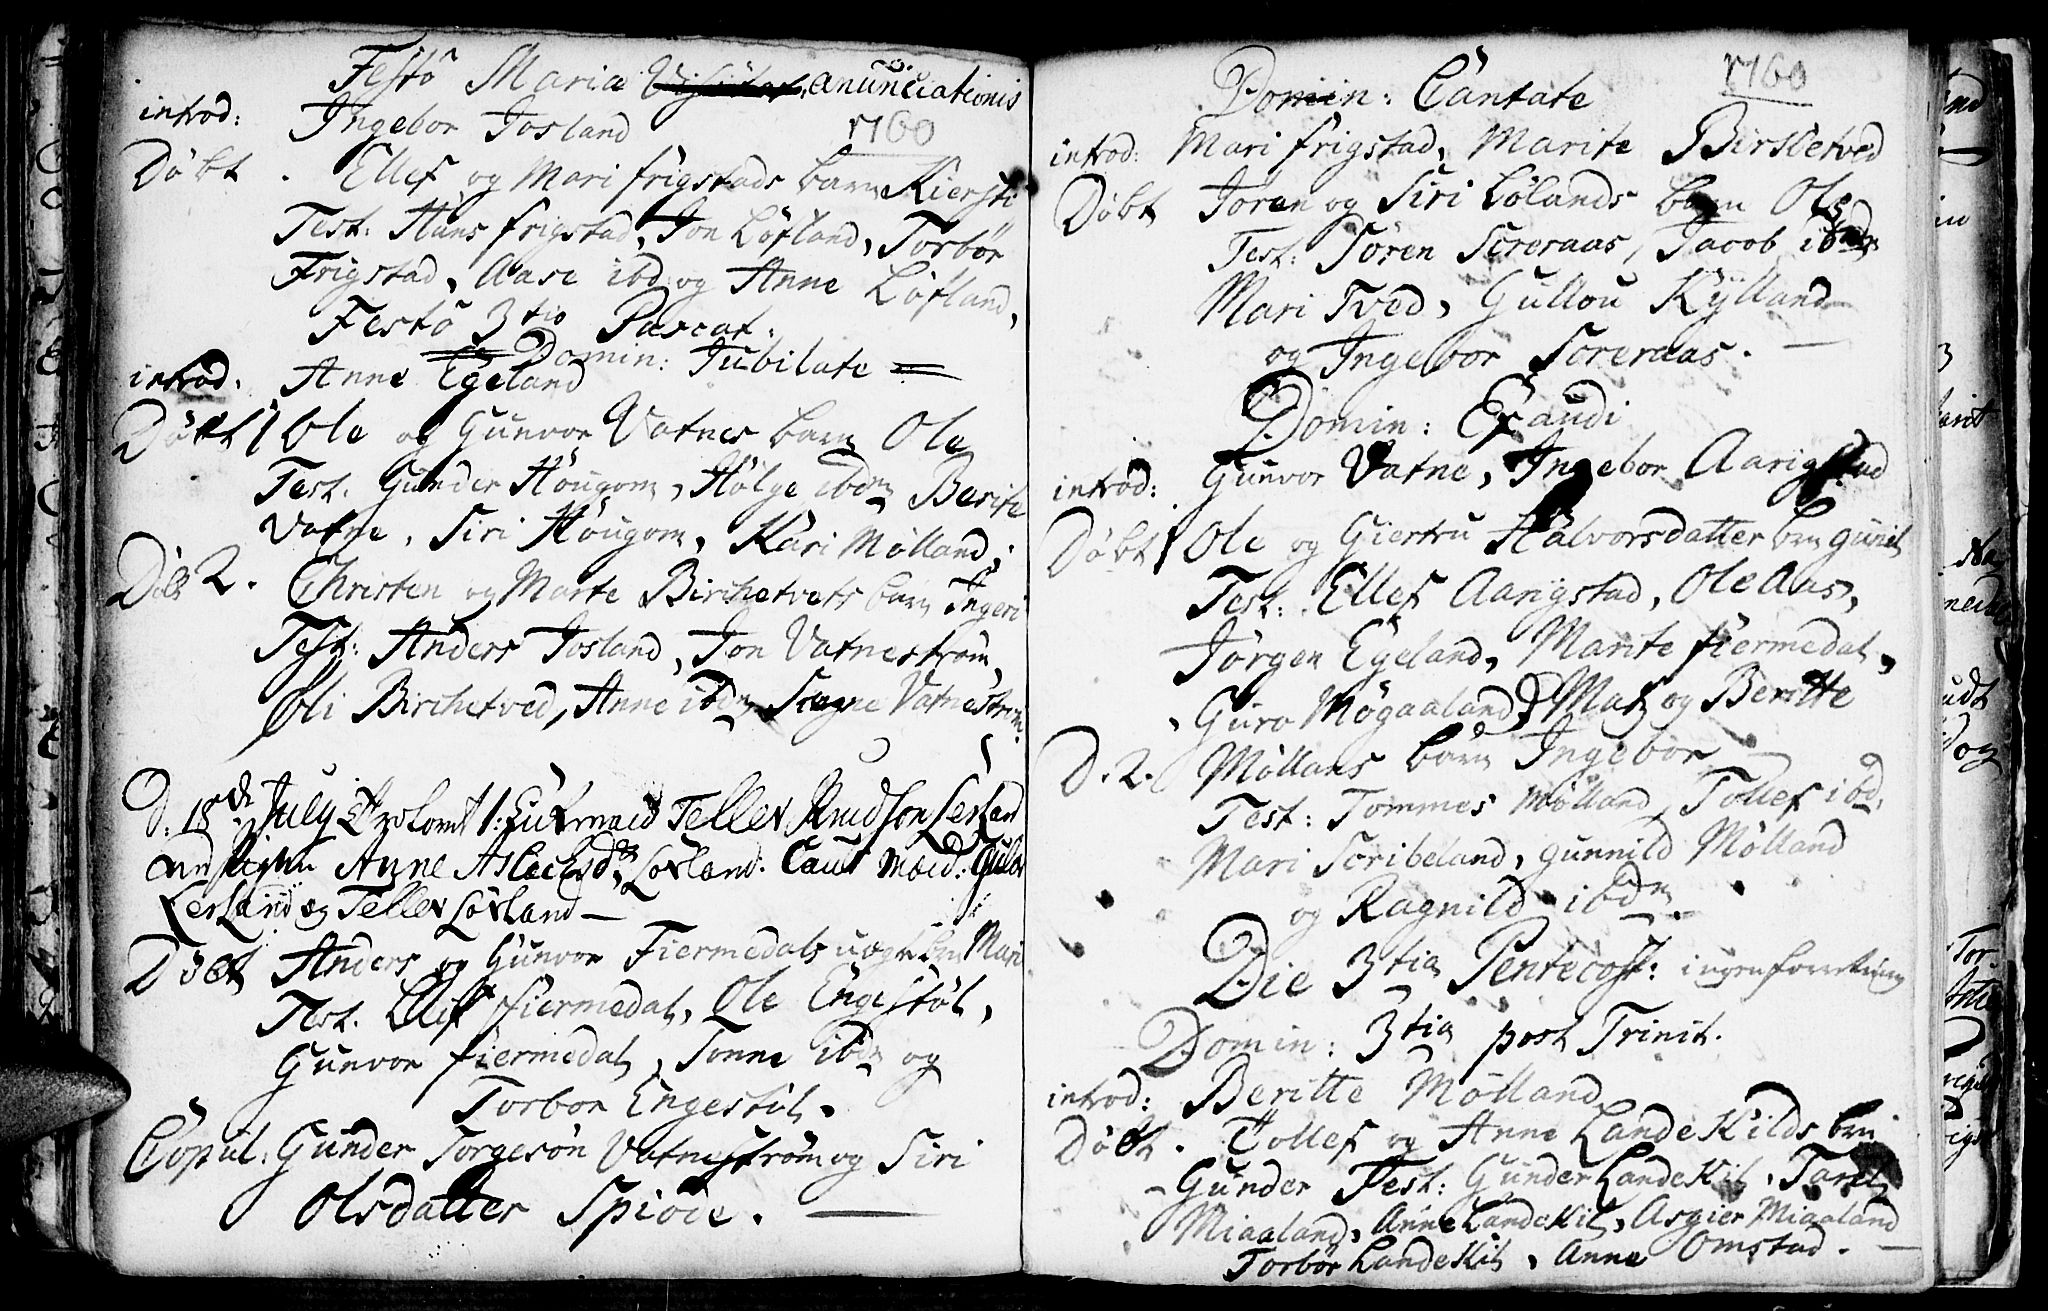 Festo Maria anunciationis
introd: Ingebor Josland
1760
Døbt. Ellef og Mari frigstads barn Kiersti
Test: Hans frigstad, Jon Løfland, Torbor
Frigstad, Aase ibd: og Anne Løfland,
Festo 3tio Pascat:
Domin: Jubilate
introd. Anne Egeland
Døbt 1 Ole og Gunvor Vatnes barn Ole
Test. Gunder Hougom, Hølge ibdm Berite
Vatne, Siri Hougom, Kari Mølland;
Døbt 2. Christen og Marte Birchetvets barn Ingeri
Test: Anders Josland, Jon Vatnestrøm,
Oli Birchetved, Anne ibdm Vatnestrøm.
D. 18de July Tellev Knudson Lerland
Anne Aslachsdt: Løvland. Caut
Lerland og Tellev Løvland
Døbt Anders og Gunvor Fiermedals barn Mari
Test. Ellef fiermedal, Ole Engestøl,
Gunvor fiermedal, Tonne ibdm og
Torbor Engestøl.
Copul: Gunder Torgesøn Vatnestrøm og Siri
Olsdatter Spiode.
1760
Domin: Cantate
introd: Mari frigstad, Marite Birketved
Døbt Søren og Siri Lølands barn Ole
Test: Søren Soreraas, Jacob ibdm
Mari Tved, Gullou Kylland
og Ingebor Soreraas.
Domin: Exaudi
introd: Gunvor Vatne, Ingebor Aarigstad
Døbt 1 Ole og Giertru Halvorsdatter brn Gunil
Test: Ellef Aarigstad, Ole Aas,
Jørgen Egeland, Marite fiermedal,
Guro Møgaaland Matz og Beritte
D. 2. Møllans barn Ingebor
Test: Tommes Mølland, Tollef ibd.
Mari Scribeland, gunnild Mølland
og Ragnild ibdm
Die 3tia Pentecost: ingen forretning
Domin: 3tia post Trinit.
introd: Beritte Mølland
Døbt. Tollef og Anne LandeKilds brn
Gunder Test: Gunder LandeKil, Taral
Miaaland, Anne LandeKil, Asgier Miaaland
Torbor LandeKil, Anne Omstad.